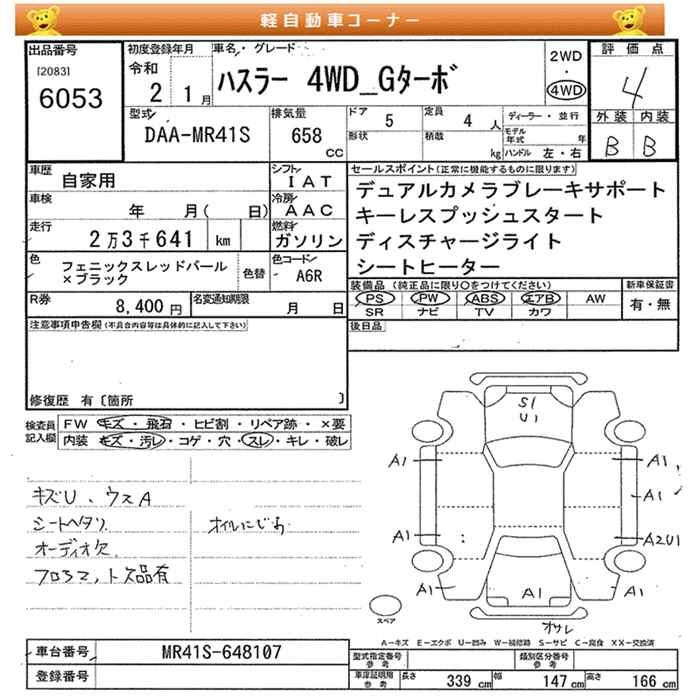 軽自動車コーナー
出品番号
[2083]
6053
初度登録年月
令和
2 1月
車名・グレード
ハスラー 4WD_Gターボ
2WD
・
4WD
評価点
4
外装 内装
B B
型式
DAA-MR41S
排気量
658
CC
ドア 5
形状
定員 4 人
積載 kg
ディーラー・並行
モデル年式 年
ハンドル 左・右
車歴 自家用
シフト IAT
車検 年 月( 日)
冷房 AAC
走行 2万3千641 km
燃料 ガソリン
色 フェニックスレッドパール
×ブラック
色替
色コード A6R
R券 8,400円
名変通知期限 月 日
セールスポイント(正常に機能するものに限ります)
デュアルカメラブレーキサポート
キーレスプッシュスタート
ディスチャージライト
シートヒーター
装備品 (純正品に限り○をつけてください)
PS PW ABS エアB AW
SR ナビ TV カワ
新車保証書
有・無
後日品
注意事項申告欄(不具合内容等は具体的に記入して下さい)
修復歴 有〔箇所 〕
検査員記入欄
FW キズ・飛石・ヒビ割・リペア跡・×要
内装 キズ・汚レ・コゲ・穴・スレ・キレ・破レ
キズU、ウスA
シートヘタリ
オイルにじみ
オーディオ欠
フロアマット欠品有
S1
U1
A1 A1
A1
A1 A2U1
A1 A1 A1
オサレ
スペア
A-キズ E-エクボ U-凹み W-補修跡 S-サビ C-腐食 XX-交換済
車台番号 MR41S-648107
登録番号
型式指定番号
参考
類別区分番号
参考
車庫証明用
参考
長さ 339 cm
幅 147 cm
高さ 166 cm